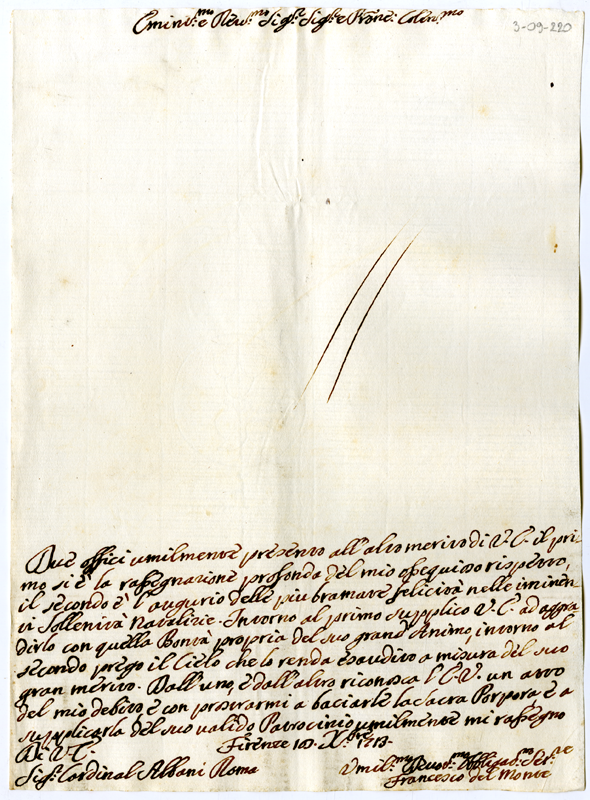 Emin.mo e Rev.mo Sig.r Sig.r e Prone Colen.mo
3-09-220
Due offici umilmente presento all'alto merito di V.E. il pri-
mo si è la rassegnazione profonda del mio ossequioso rispetto,
il secondo è l'augurio delle più bramate felicità nelle iminen
ti Sollenità Natalizie. Intorno al primo supplico V.E. ad aggra
dirlo con quella Bontà propria del suo grand'Animo, intorno al
secondo prego il Cielo che lo renda esaudito a misura del suo
gran merito. Dall'uno, e dall'altro riconosca l'E.V. un atto
del mio debito e con prostrarmi a baciarle la Sacra Porpora e a
supplicarla del suo valido Patrocinio umilmente mi rassegno
Di V.E. Firenze X.bre 1713.
Sig.r Cardinal Albani Roma Umil.mo Devot.mo Obbligat.mo Ser.re
Francesco del Monte